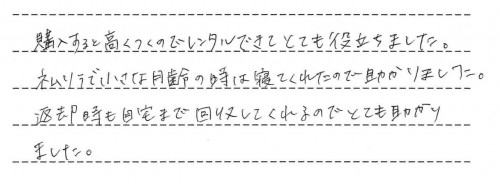 購入すると高くつくのでレンタルできてとても役立ちました。
ネムリラで小さな月齢の時は寝てくれたので助かりました。
返却時も自宅まで回収してくれるのでとても助かり
ました。